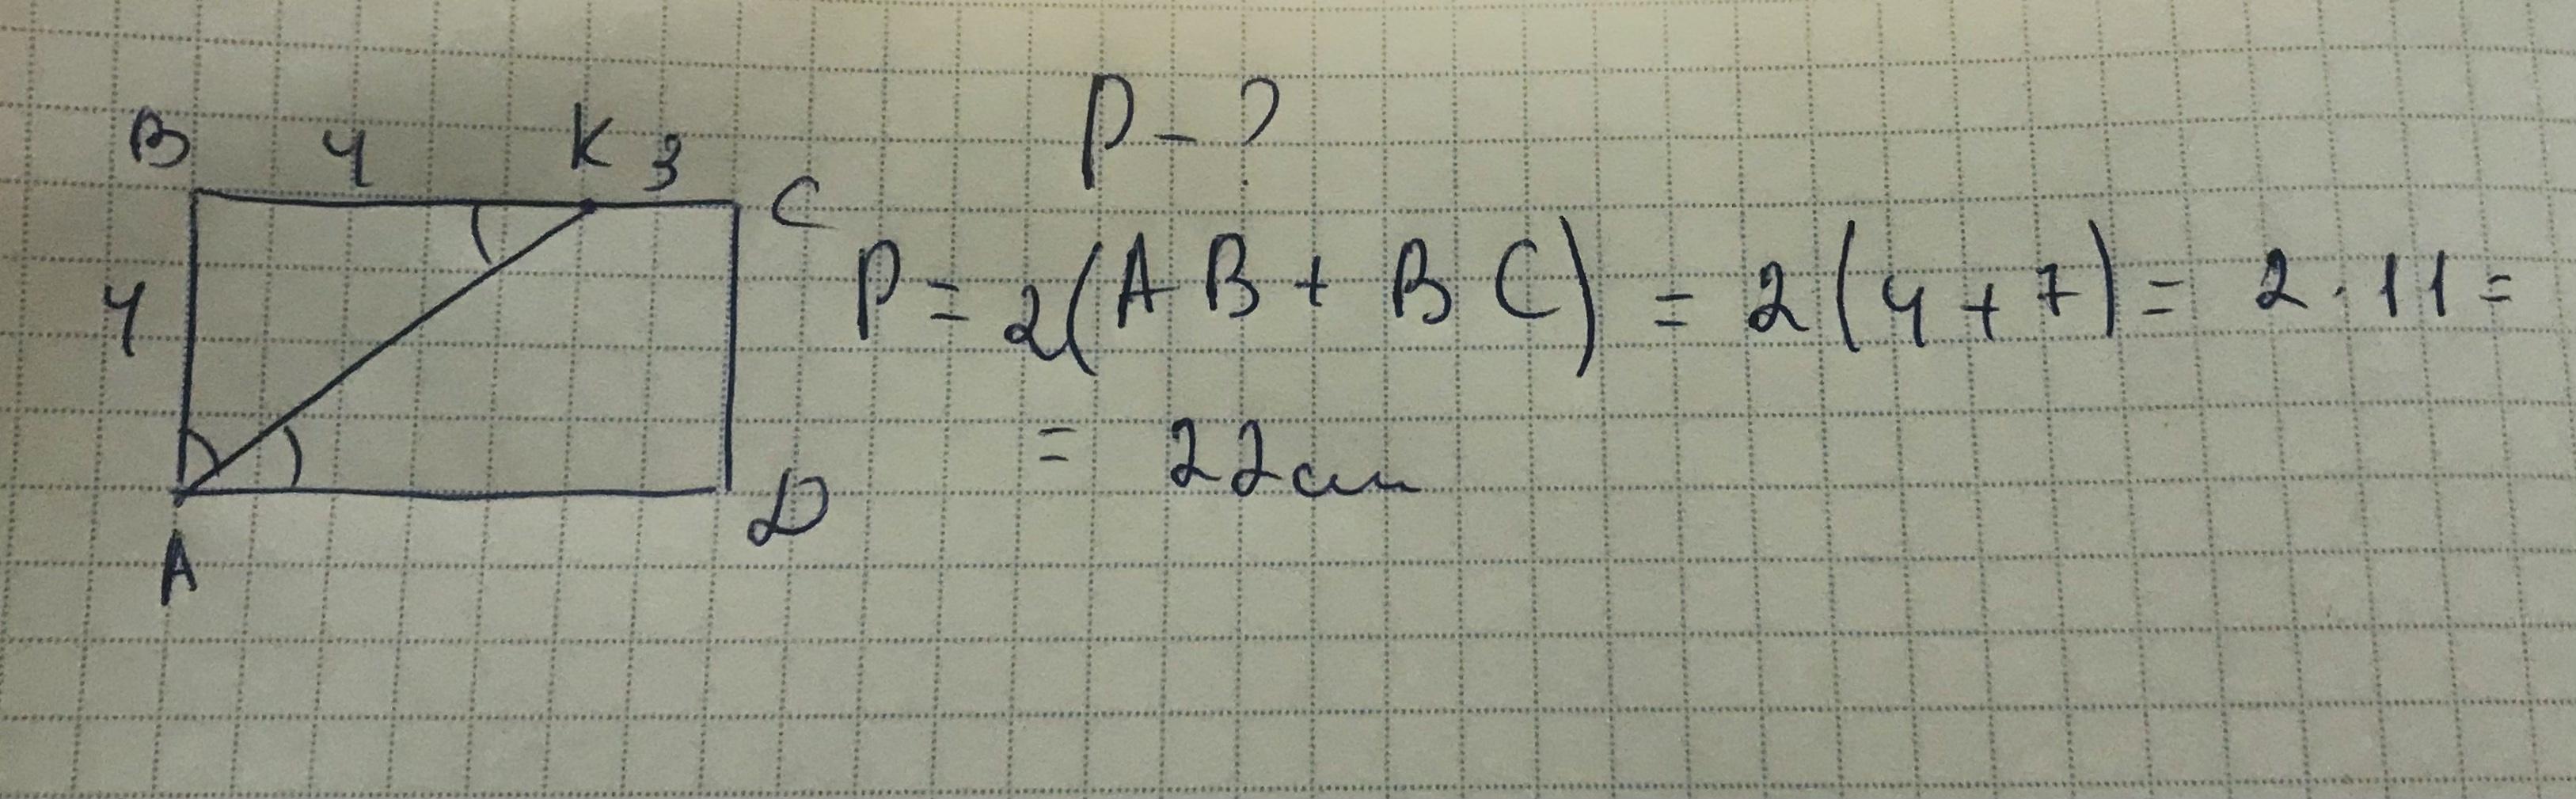 P - ?
B 4 K 3 C
4
A
D
P = 2(AB + BC) = 2(4+7) = 2 · 11 =
= 22 см